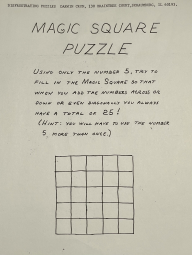 MAGIC SQUARE
PUZZLE
USING ONLY THE NUMBER 5, TRY TO
FILL IN THE MAGIC SQUARE SO THAT
WHEN YOU ADD THE NUMBERS ACROSS OR
DOWN OR EVEN DIAGONALLY YOU ALWAYS
HAVE A TOTAL OF 25!
(HINT: YOU WILL HAVE TO USE THE NUMBER
5 MORE THAN ONCE.)